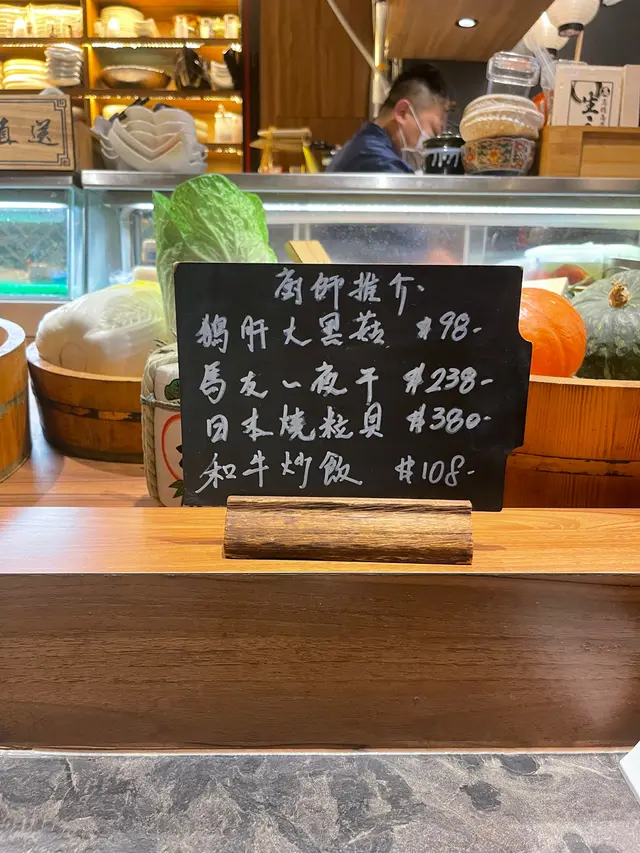 直送
廚師推介.
鵝肝大黑菇 $98-
馬友一夜干 $238-
日本燒粒貝 $380-
和牛炒飯 $108-